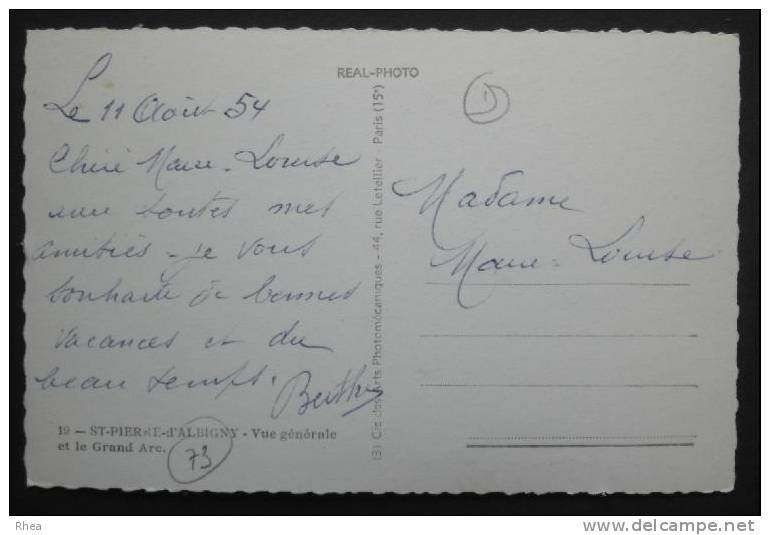 REAL-PHOTO
Le 11 Août 54
Chère Marie-Louise
avec toutes mes
amitiés - je vous
souhaite de bonnes
vacances et du
beau temps.
Berthe
19 — ST-PIERRE-d'ALBIGNY - Vue générale
et le Grand Arc.
73
(3) Cie des Arts Photomécaniques - 44, rue Letellier - Paris (15e)
1
Madame
Marie-Louise
Rhea
www.delcampe.net